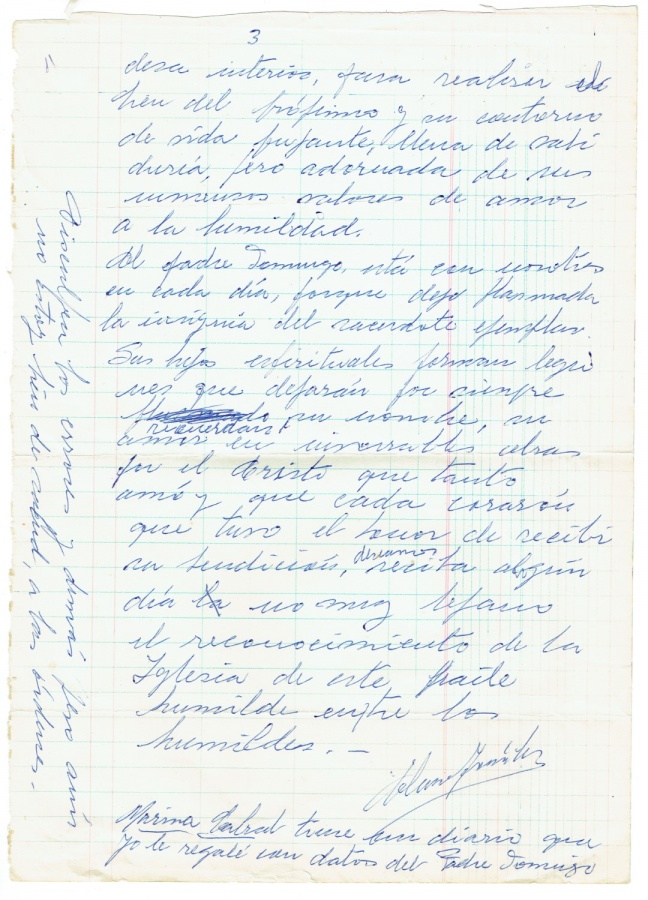 3
desa interior, para realizar el
bien del prójimo y su contorno
de vida pujante, llena de sabi
duría, pero adornada de sus
inmensos valores de amor
a la humildad.
El padre Domingo, está con nosotros
en cada día, porque dejo plasmada
la insignia del sacerdote ejemplar.
Sus hijos espirituales forman legio
nes que dejarán por siempre
su nombre, su
recuerdan
amor en inborrables obras
por el Cristo que tanto
amó y que cada corazón
que tuvo el honor de recibir
su bendición, deseamos reciba algún
día no muy lejano
el reconocimiento de la
Iglesia de este fraile
humilde entre los
humildes. —
Marina Cabral tiene un diario que
yo le regalé con datos del Padre Domingo
Disculpen los errores y demás pero aún
no estoy bien de salud, a las órdenes.